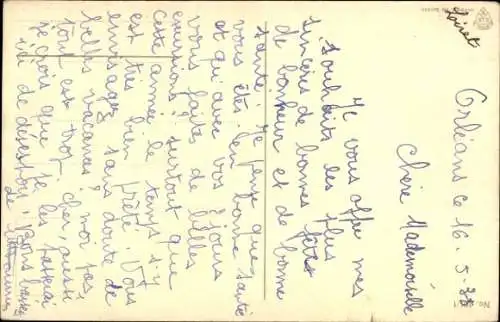 Loiret
Orléans ce 16.5.32
Chère Mademoiselle
Je vous offre mes
souhaits les plus
sincères de bonnes fêtes
de bonheur et de bonne
santé. Je pense que
vous êtes en bonne santé
et qu'avec vos joujous
vous faites de belles
excursions, surtout que
cette année le temps s'y
est très bien prêté. Vous
envisagez sans doute de
belles vacances? moi pas
tout est trop cher, aussi
je crois que je les passerai
ici de désespoir. bons baisers
de
No.